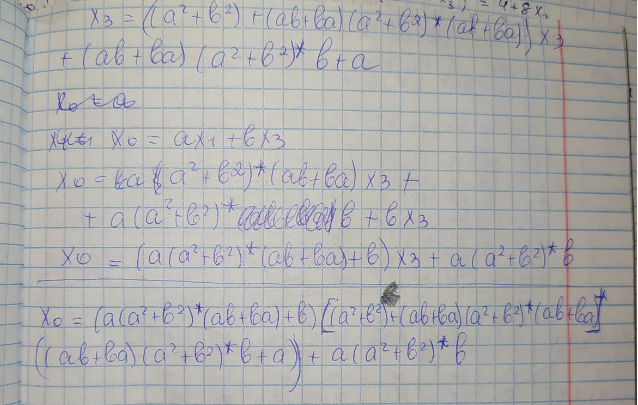 x₃ = ((a²+b²) + (ab+ba)(a²+b²)*(ab+ba)) x₃
+ (ab+ba)(a²+b²)* b+a
x₀ = ax₁ + bx₃
x₀ = a(a²+b²)*(ab+ba) x₃ +
+ a(a²+b²)* b + bx₃
x₀ = (a(a²+b²)*(ab+ba)+b) x₃ + a(a²+b²)* b
x₀ = (a(a²+b²)*(ab+ba)+b) [(a²+b²)+(ab+ba)(a²+b²)*(ab+ba)]*
((ab+ba)(a²+b²)* b+a) + a(a²+b²)* b